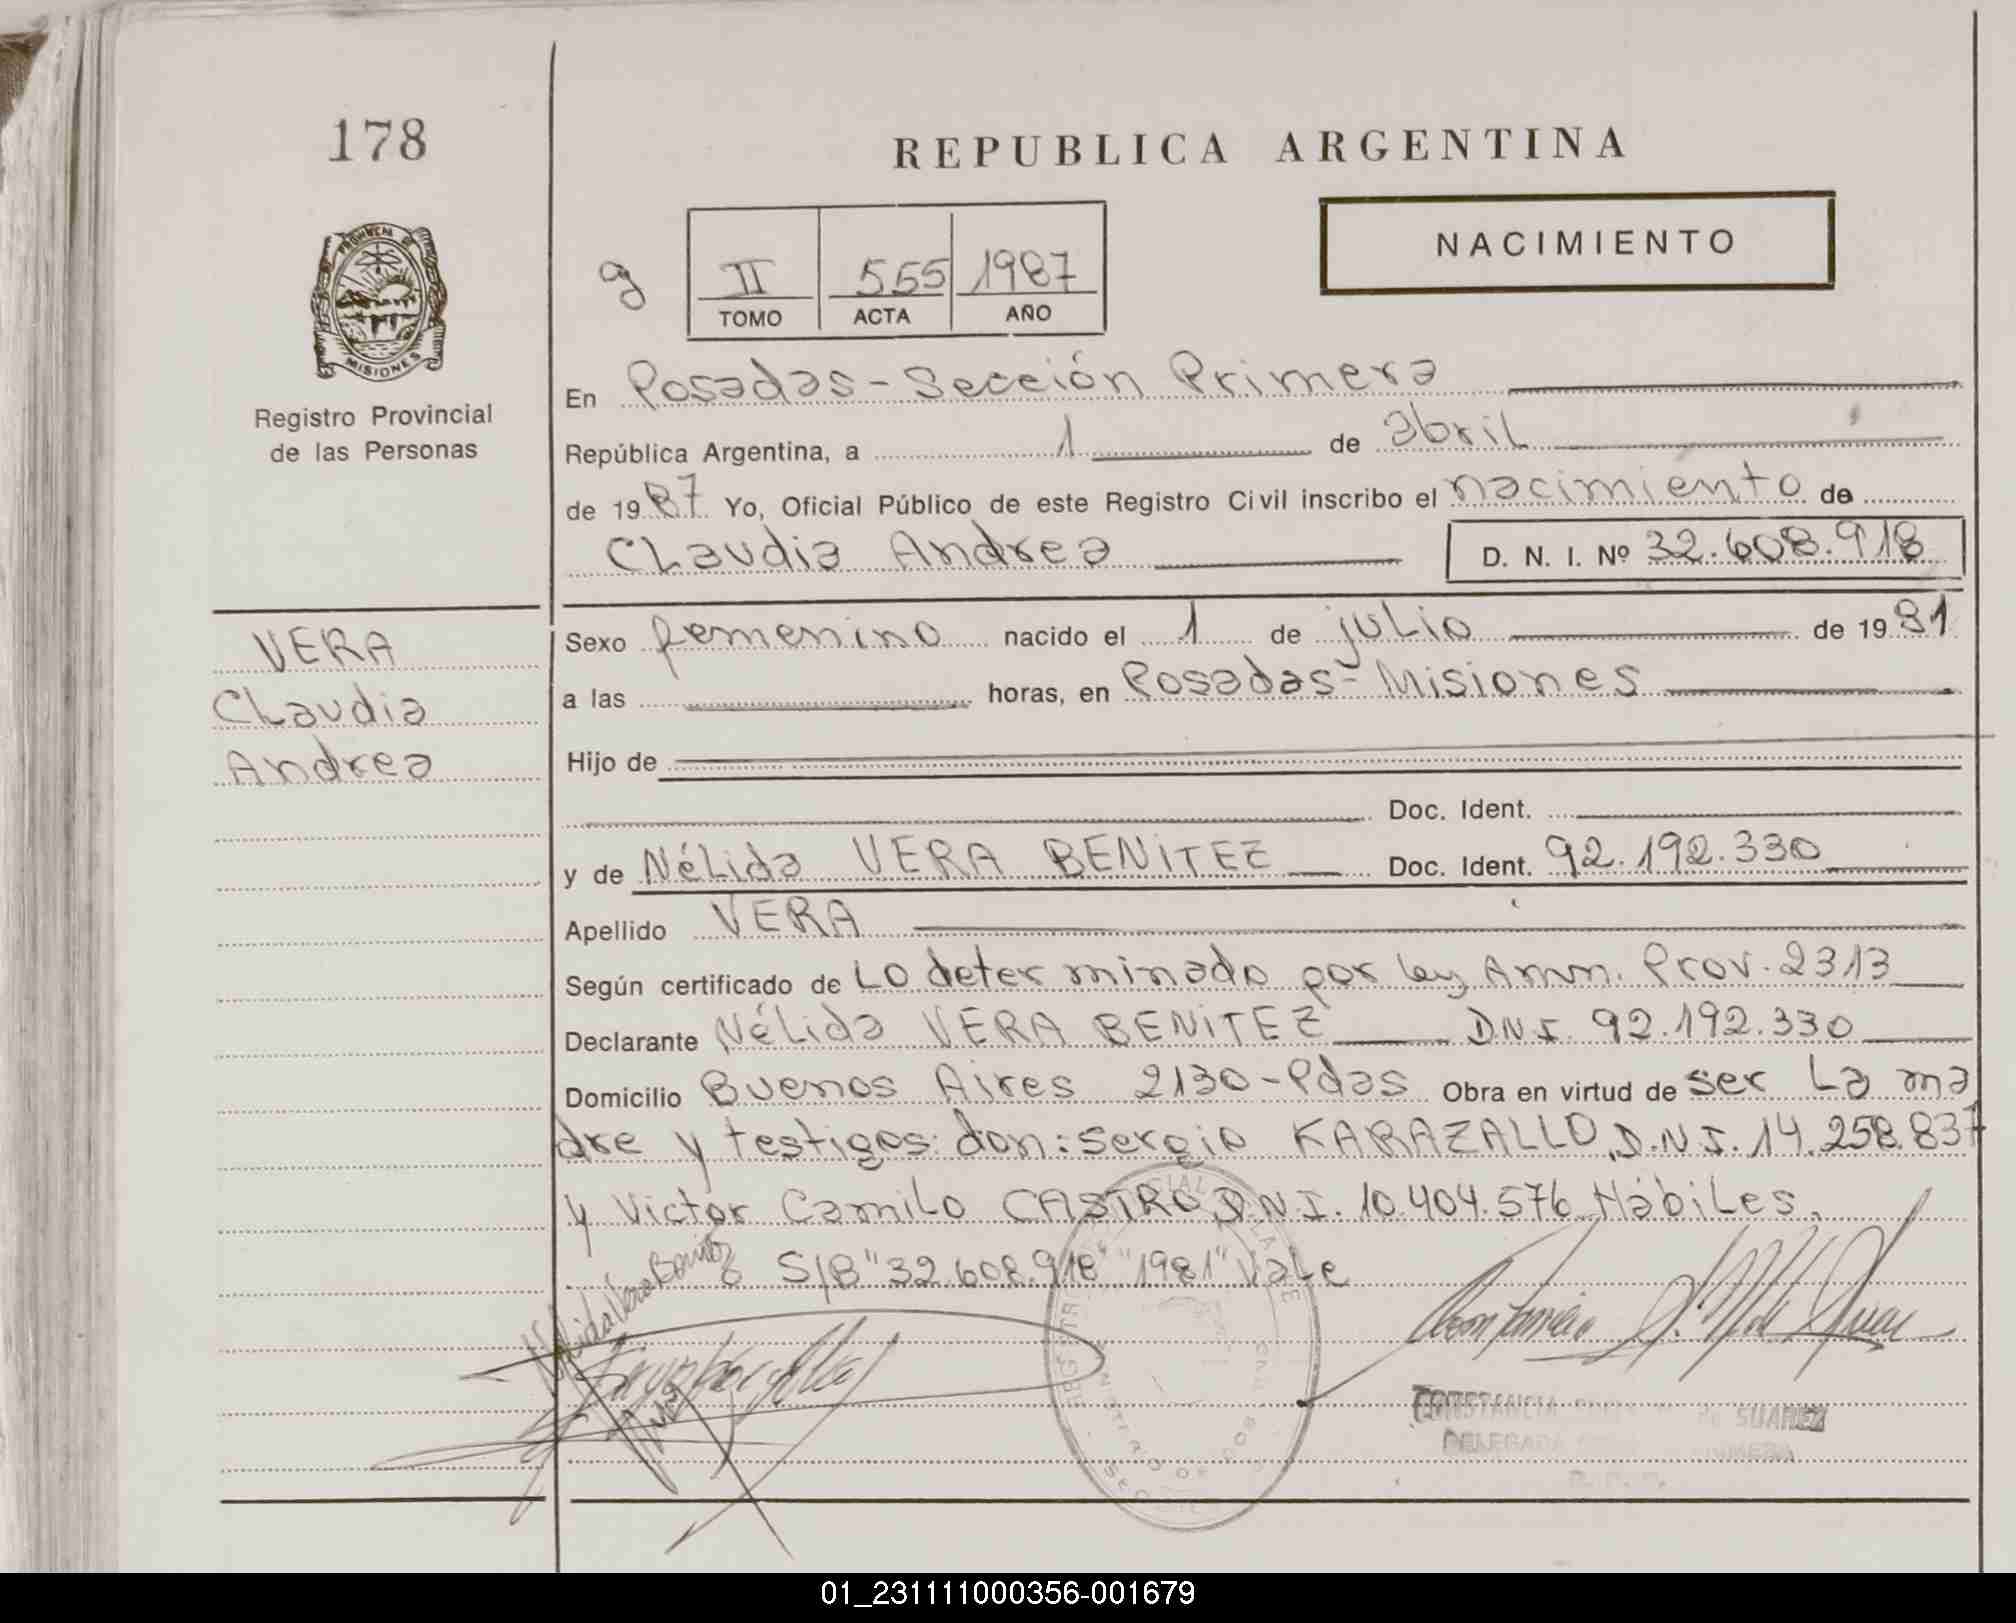 178
REPUBLICA ARGENTINA
NACIMIENTO
g
II 555 1987
TOMO ACTA AÑO
PROVINCIA DE
MISIONES
Registro Provincial
de las Personas
En Posadas-Sección Primera
República Argentina, a 1 de abril
de 1987 Yo, Oficial Público de este Registro Civil inscribo el nacimiento de
Claudia Andrea D. N. I. Nº 32.608.918
VERA
Claudia
Andrea
Sexo femenino nacido el 1 de julio de 1981
a las horas, en Posadas-Misiones
Hijo de
Doc. Ident.
y de Nélida VERA BENITEZ Doc. Ident. 92.192.330
Apellido VERA
Según certificado de Lo determinado por ley Amn. Prov. 2313
Declarante Nélida VERA BENITEZ DNI 92.192.330
Domicilio Buenos Aires 2130-Pdas Obra en virtud de ser La ma
dre y testigos: don: Sergio KARAZALLO, D.N.I. 14.258.837
y Victor Camilo CASTRO D.N.I. 10.404.576 Hábiles.
S/B "32.608.918" "1981" Vale
Nélida Vera Benitez
CONSTANCIA DE SUAREZ
DELEGADA PRIMERA
01_231111000356-001679